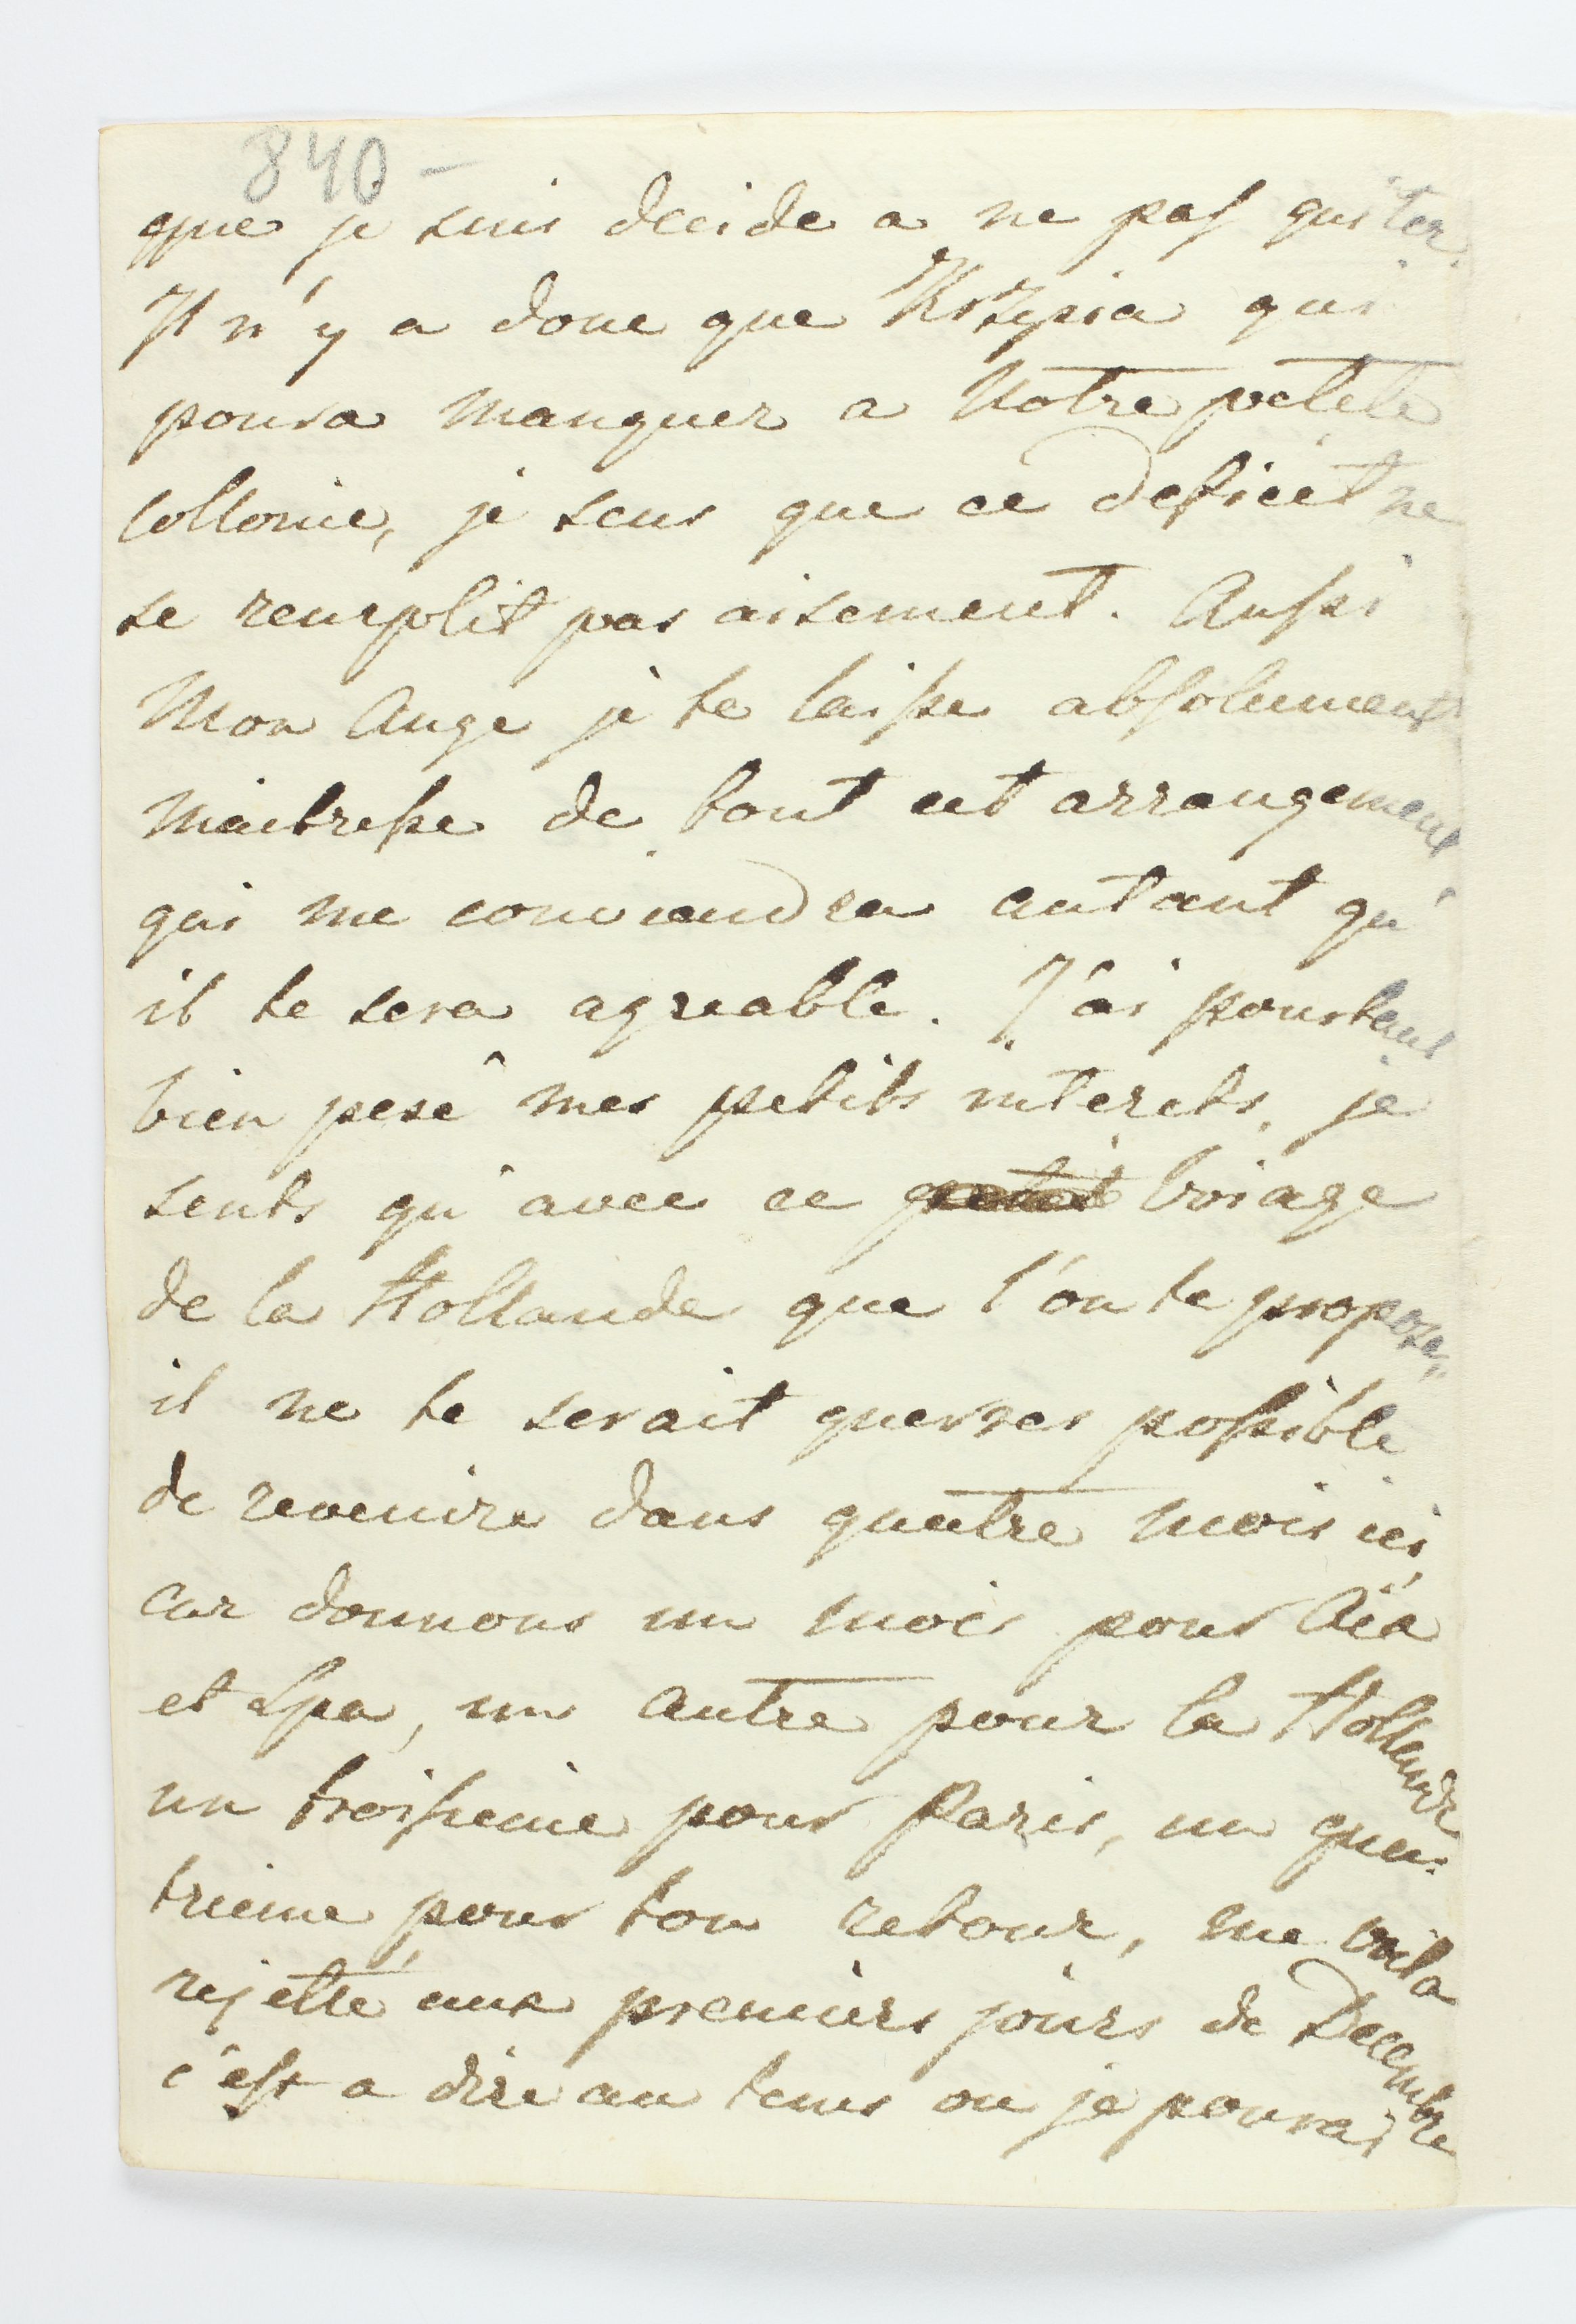 840 –
que je suis decide a ne pas quiter.
Il n'y a donc que Krzysia qui
poura manquer a Notre petete
Collonie, je sens que ce deficit ne
se remplit pas aisement. Aussi
Mon Ange je te laisse absolument
Maitresse de tout cet arrangement,
qui me conviendra autant qu'
il te sera agreable. J'ai pourtant
bien pesé mes petits interets, je
sents qu'avec ce petit voiage
de la Hollande que l'on te propose,
il ne te serait guerres possible
de revenire dans quatre mois ici,
car donnons un mois pour Aix
et Spa, un autre pour la Hollande
un troisieme pour Paris, un qua-
trieme pour ton retour, me voila
rejetté aux premiers jours de Decembre
c'est a dire au tems ou je pourai